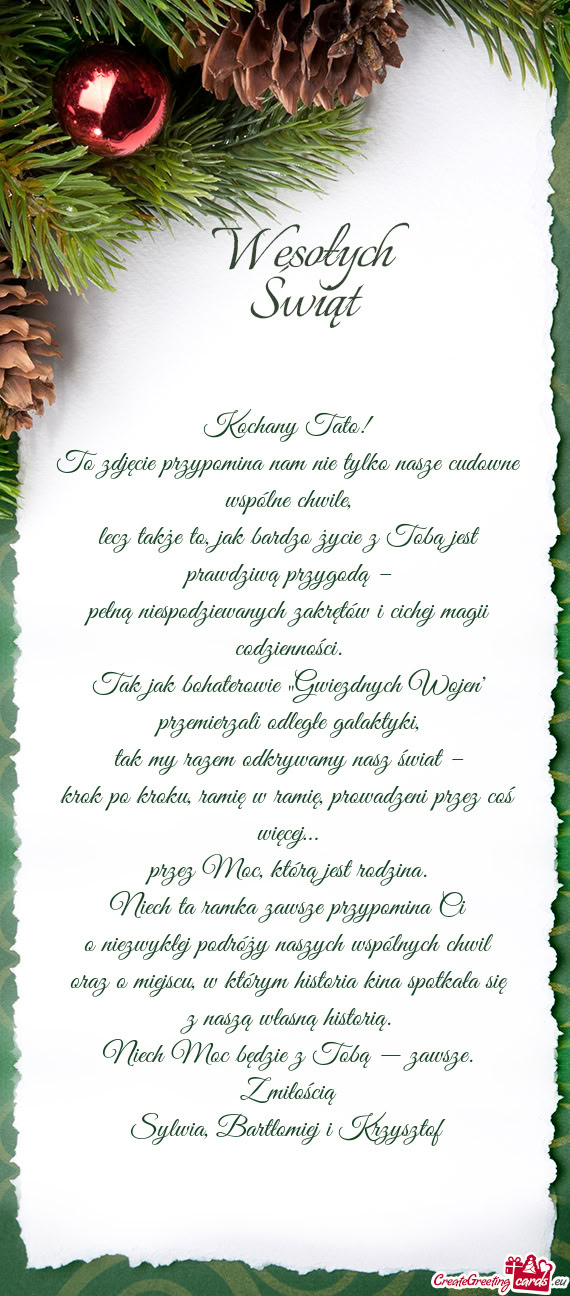 Wesołych
Świąt
Kochany Tato!
To zdjęcie przypomina nam nie tylko nasze cudowne
wspólne chwile,
lecz także to, jak bardzo życie z Tobą jest
prawdziwą przygodą –
pełną niespodziewanych zakrętów i cichej magii
codzienności.
Tak jak bohaterowie "Gwiezdnych Wojen"
przemierzali odległe galaktyki,
tak my razem odkrywamy nasz świat –
krok po kroku, ramię w ramię, prowadzeni przez coś
więcej...
przez Moc, którą jest rodzina.
Niech ta ramka zawsze przypomina Ci
o niezwykłej podróży naszych wspólnych chwil
oraz o miejscu, w którym historia kina spotkała się
z naszą własną historią.
Niech Moc będzie z Tobą — zawsze.
Zmiłością
Sylwia, Bartłomiej i Krzysztof
CreateGreetingcards.eu